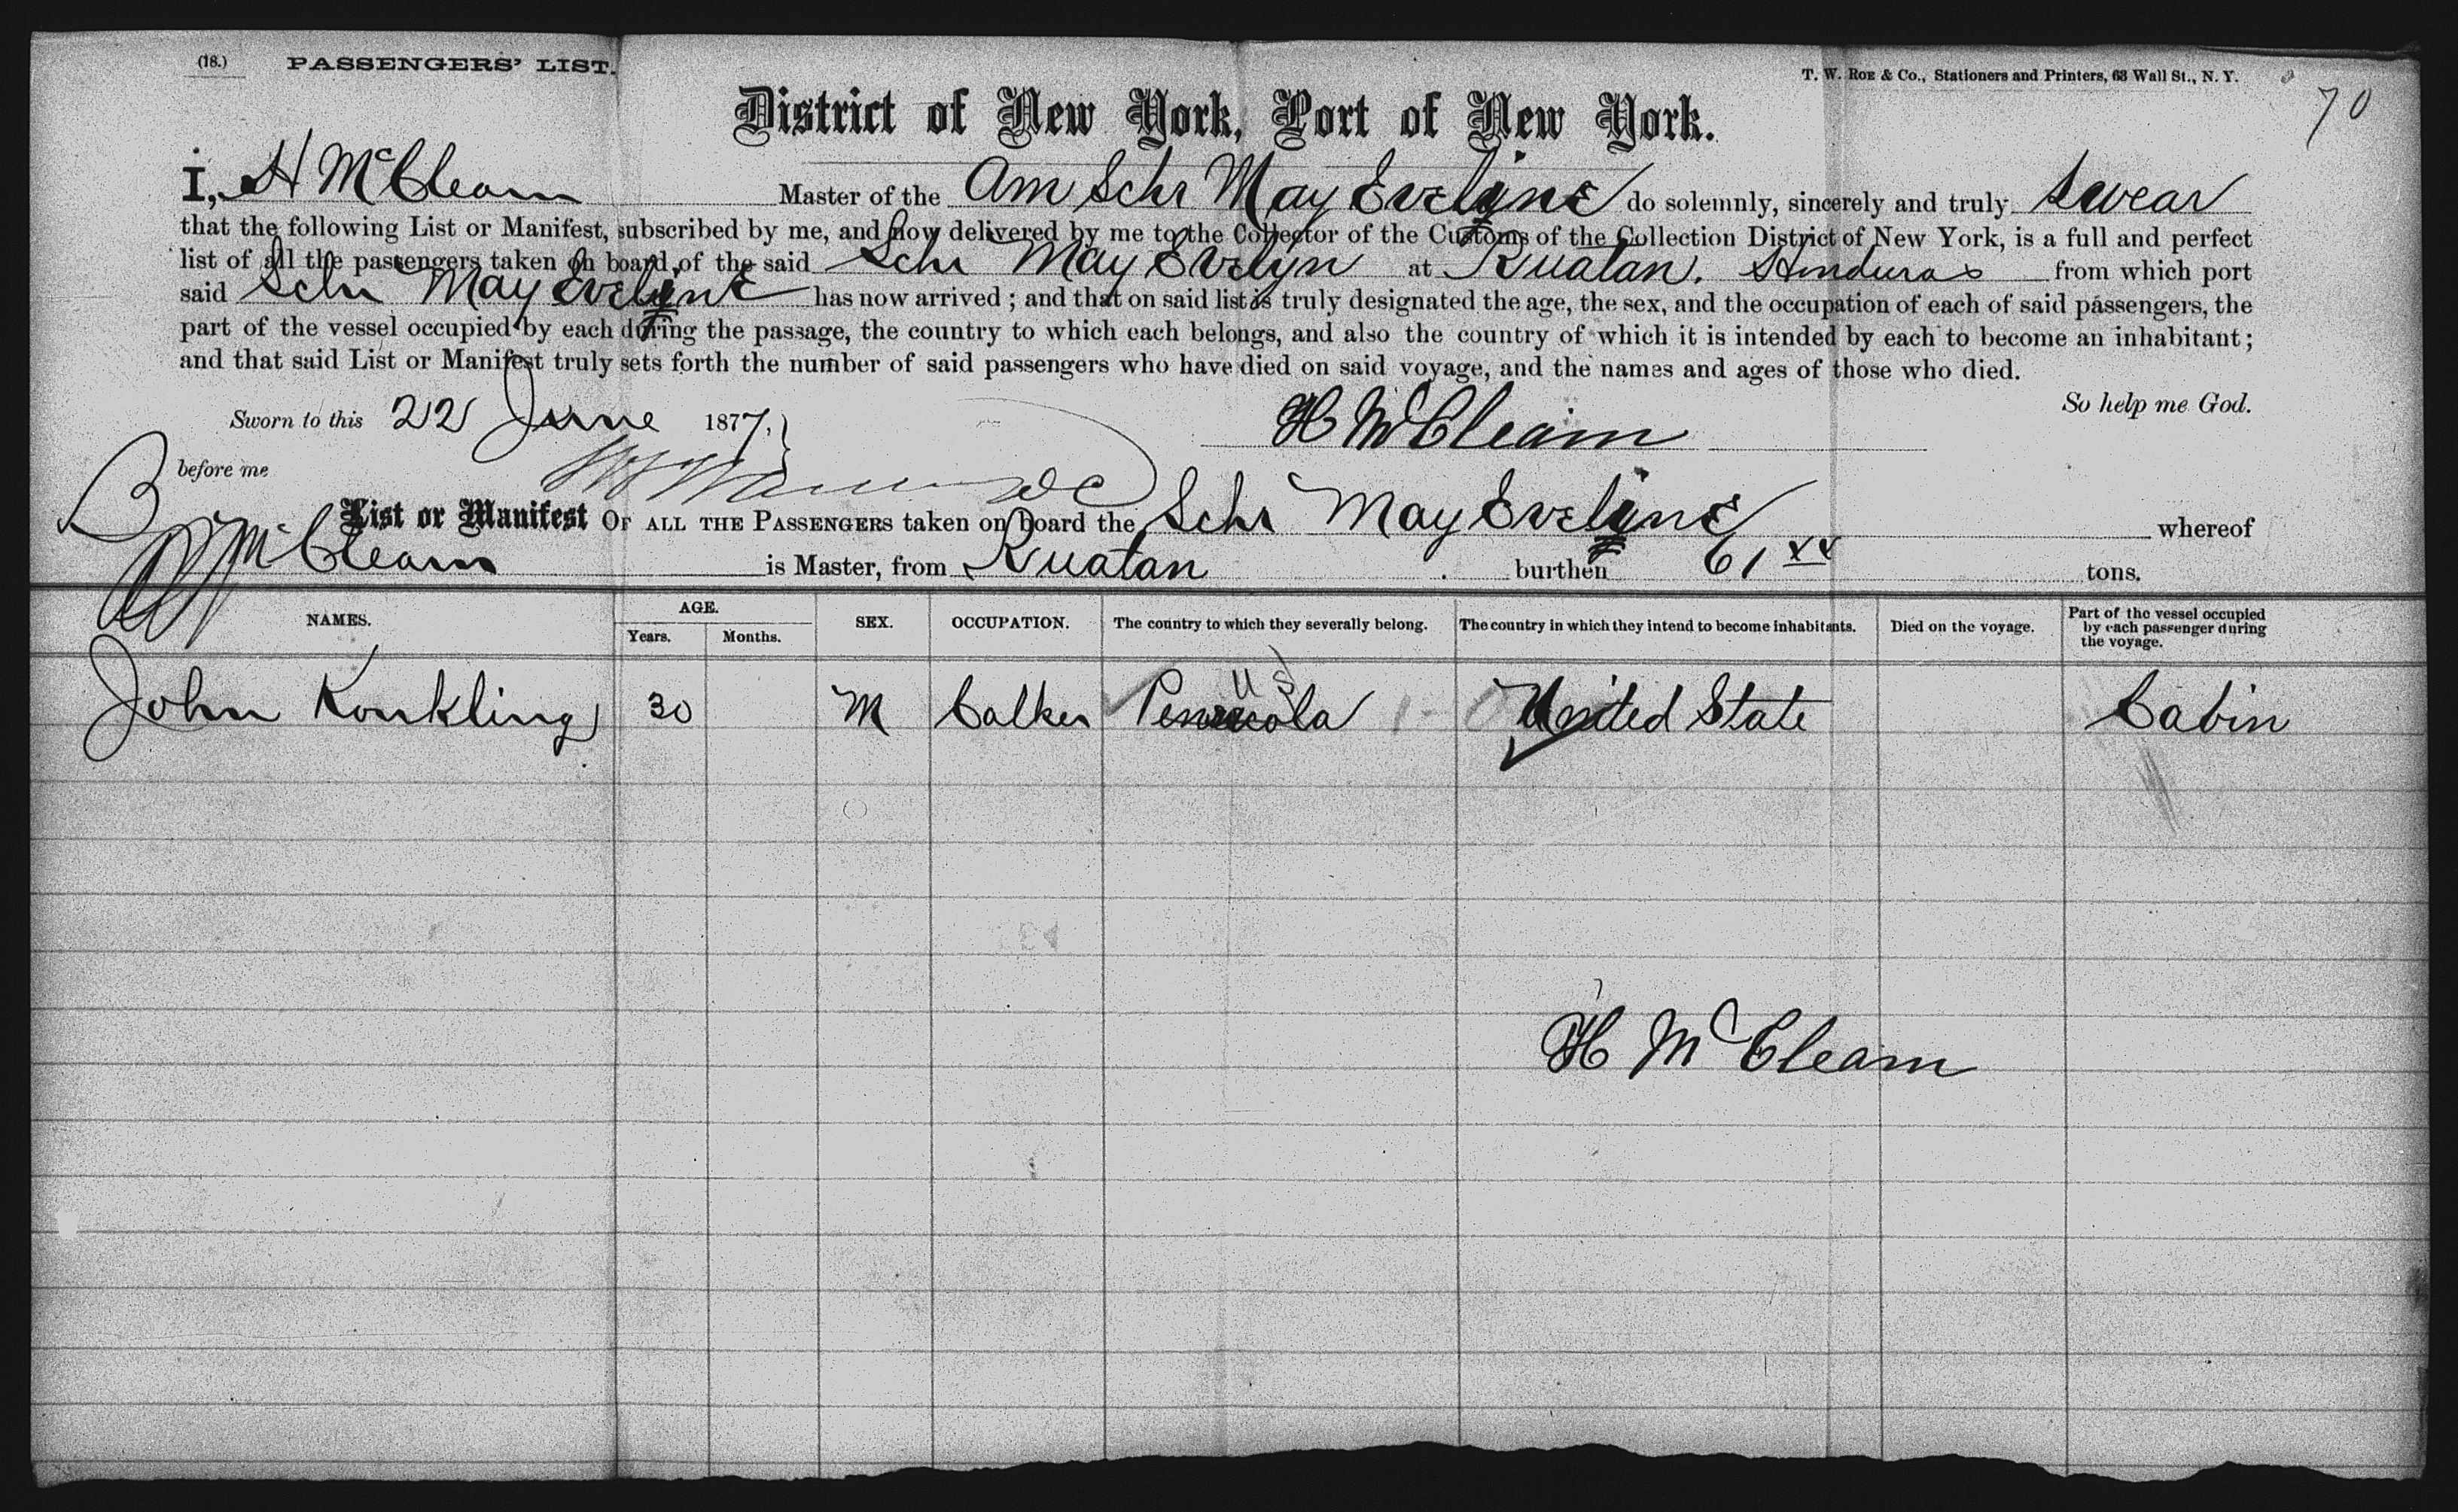 (18.) PASSENGERS' LIST.
T. W. ROE & Co., Stationers and Printers, 63 Wall St., N. Y.
70
District of New York, Port of New York.
I, H McCleam Master of the Am Schr May Evelyne do solemnly, sincerely and truly swear
that the following List or Manifest, subscribed by me, and now delivered by me to the Collector of the Customs of the Collection District of New York, is a full and perfect
list of all the passengers taken on board of the said Schr May Evelyn at Ruatan, Honduras from which port
said Schr May Evelyne has now arrived; and that on said list is truly designated the age, the sex, and the occupation of each of said passengers, the
part of the vessel occupied by each during the passage, the country to which each belongs, and also the country of which it is intended by each to become an inhabitant;
and that said List or Manifest truly sets forth the number of said passengers who have died on said voyage, and the names and ages of those who died.
So help me God.
Sworn to this 22 June 1877,
H McCleam
before me
List or Manifest OF ALL THE PASSENGERS taken on board the Schr May Evelyne whereof
McCleam is Master, from Ruatan burthen 61 tons.
NAMES. AGE. Years. Months. SEX. OCCUPATION. The country to which they severally belong. The country in which they intend to become inhabitants. Died on the voyage. Part of the vessel occupied by each passenger during the voyage.
U S
John Konkling 30 M Calker United State Cabin
H McCleam